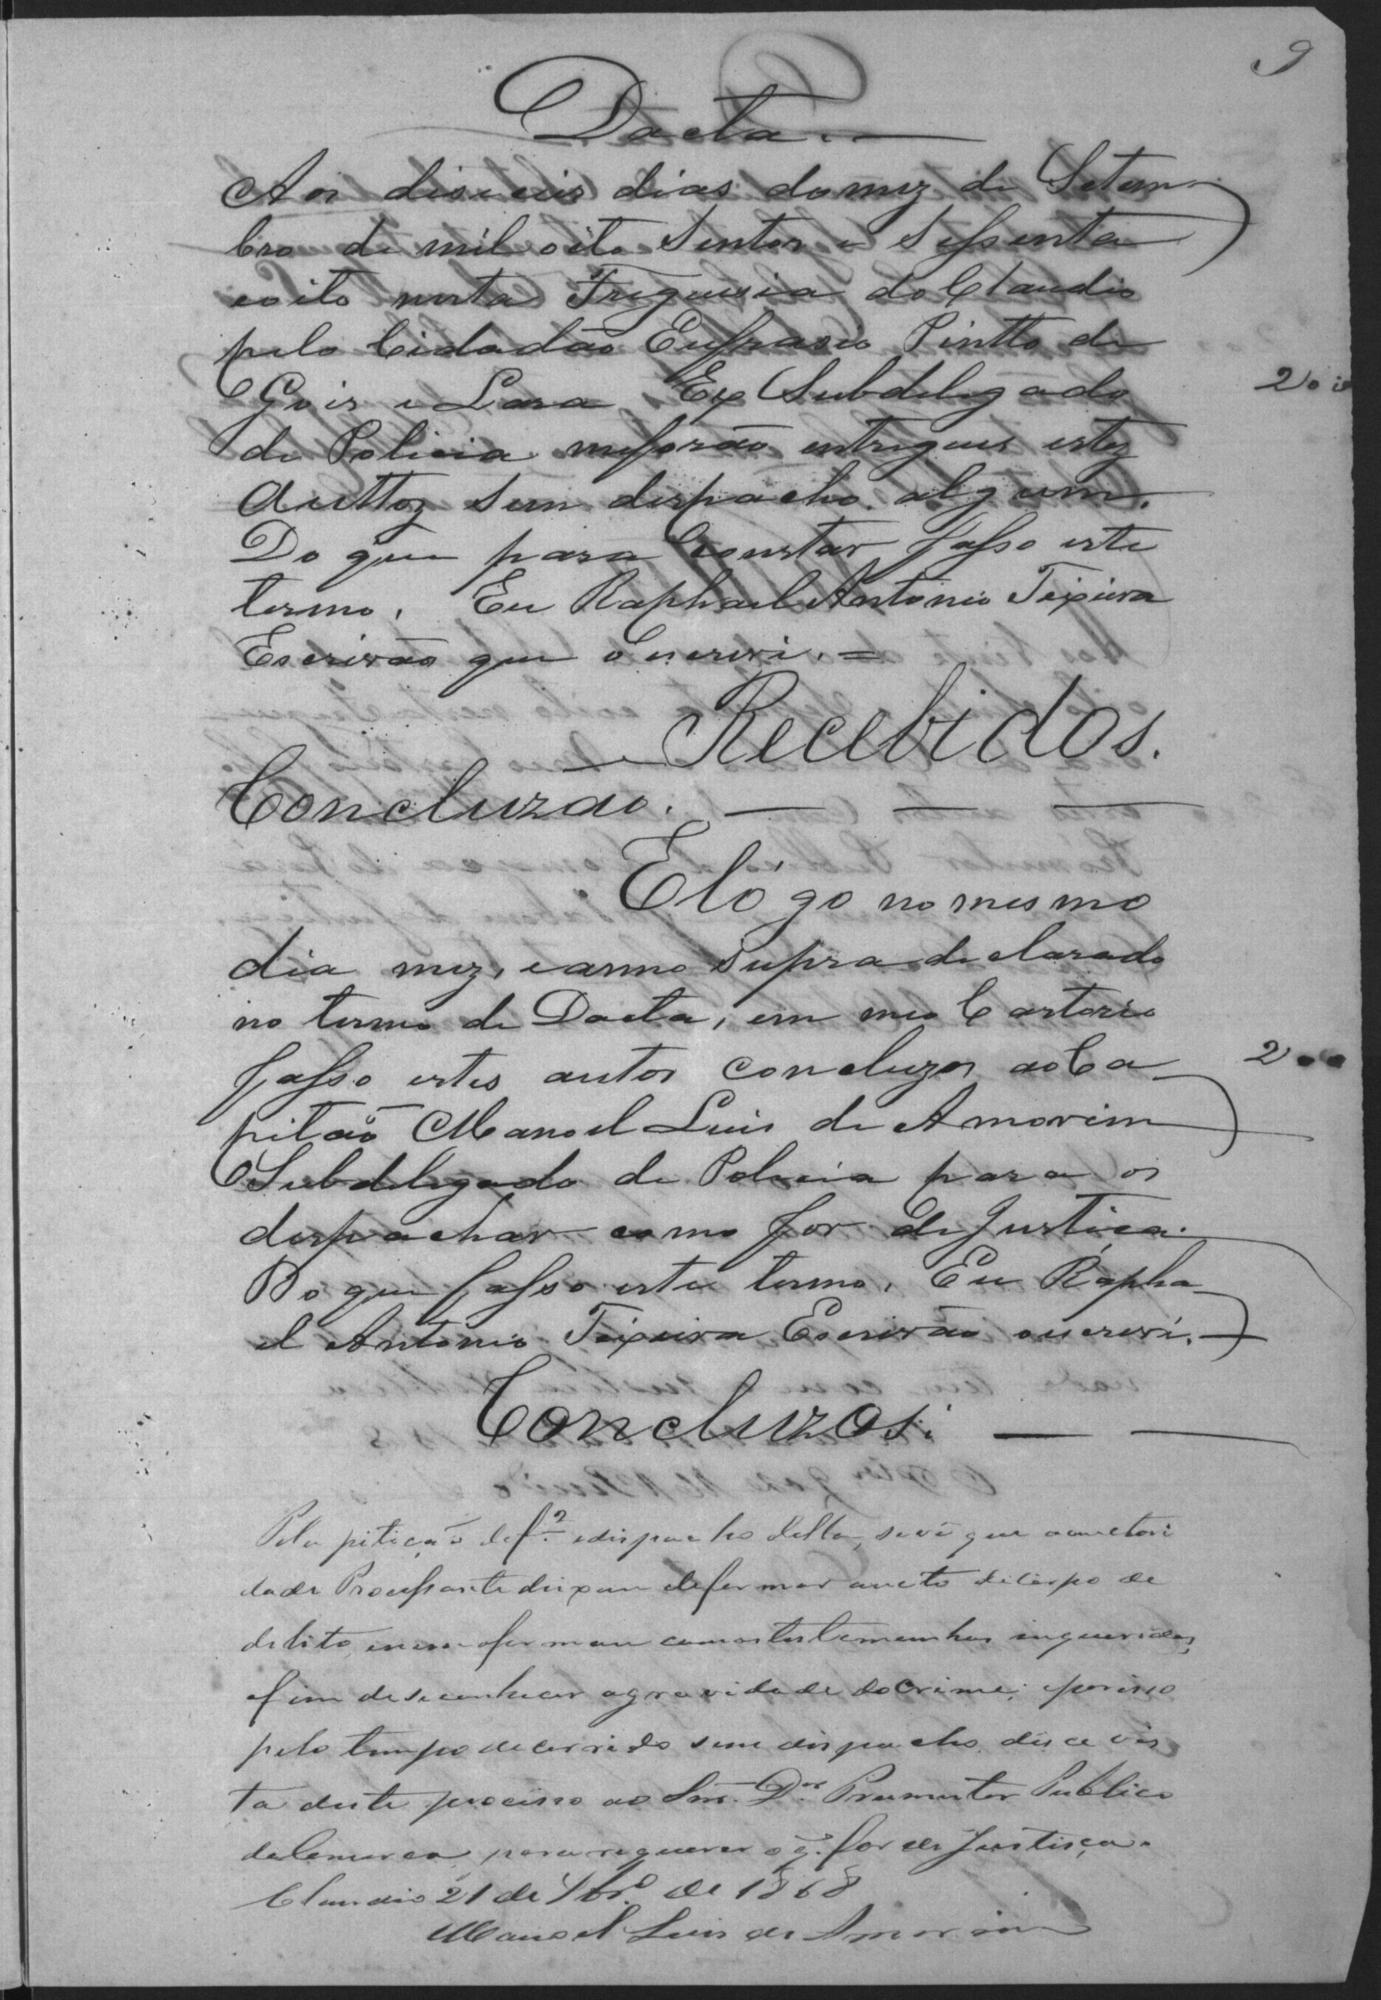 9
Dacta. —
Aos diseceis dias do mez de Setem
bro de mil oito Sentos e Sessenta
eoito nesta Freguesia do Claudio
pelo Cidadão Eufrasio Pintto de
Gois e Lara Ex Subdelegado
de Policia meforão entregues estez
Auttoz sem despacho algum.
Do que para constar fasso este
termo. Eu Raphael Antonio Teixeira
Escrivão que o escrevi. =
Recebidos.
Concluzão. — — —
E lógo no mesmo
dia mez, eanno supra declarado
no termo de Dacta, em meo Cartorio
200
fasso estes autos concluzos ao Ca
pitão Manoel Luis de Amorim
Subdelegado de Policia para os
despachar como for de Justiça.
Do que fasso este termo. Eu Rapha
el Antonio Teixeira Escrivão o escrevi.
Concluzos. — —
Pela pitição de f. 2 edispacho della, sevê que aauctori
dade Processante deixou deformar aucto decorpo de
delito, enem oformou comastestemunhas inqueridas,
afim deseconhecer agravidade do Crime; eporisso
pelo tempo decorrido sem dispacho, dêce vis
ta deste processo ao Snr. Dor. Promutor Publico
daComarca, para requerer o q. for de Justiça.
Claudio 21 de 7bro. de 1868
Manoel Luis de Amorim